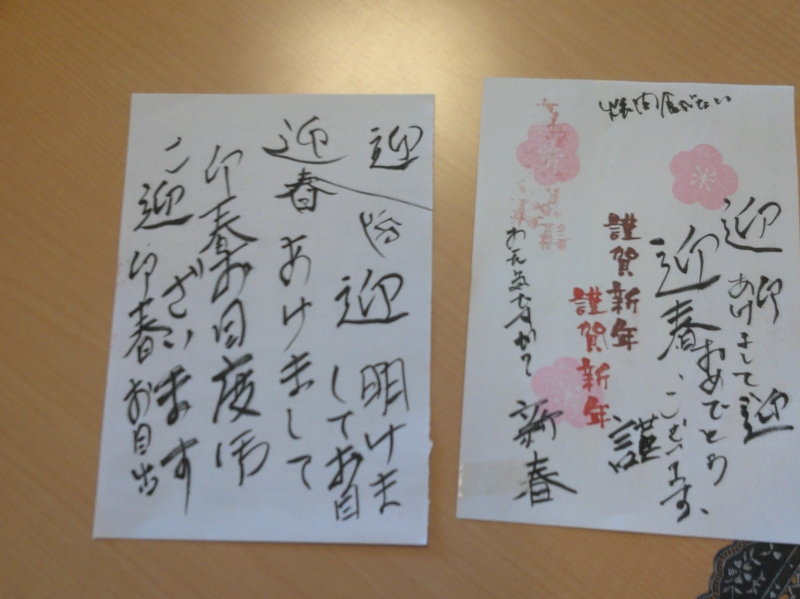 迎
迎 明けま
してお目
迎春 あけまして
印春お目度
ございます
迎 印春お目出
焼肉
迎 迎
印
あけまして
迎春おめでとう
ございます、
謹賀新年
謹賀新年
謹
お元気ですか
新春